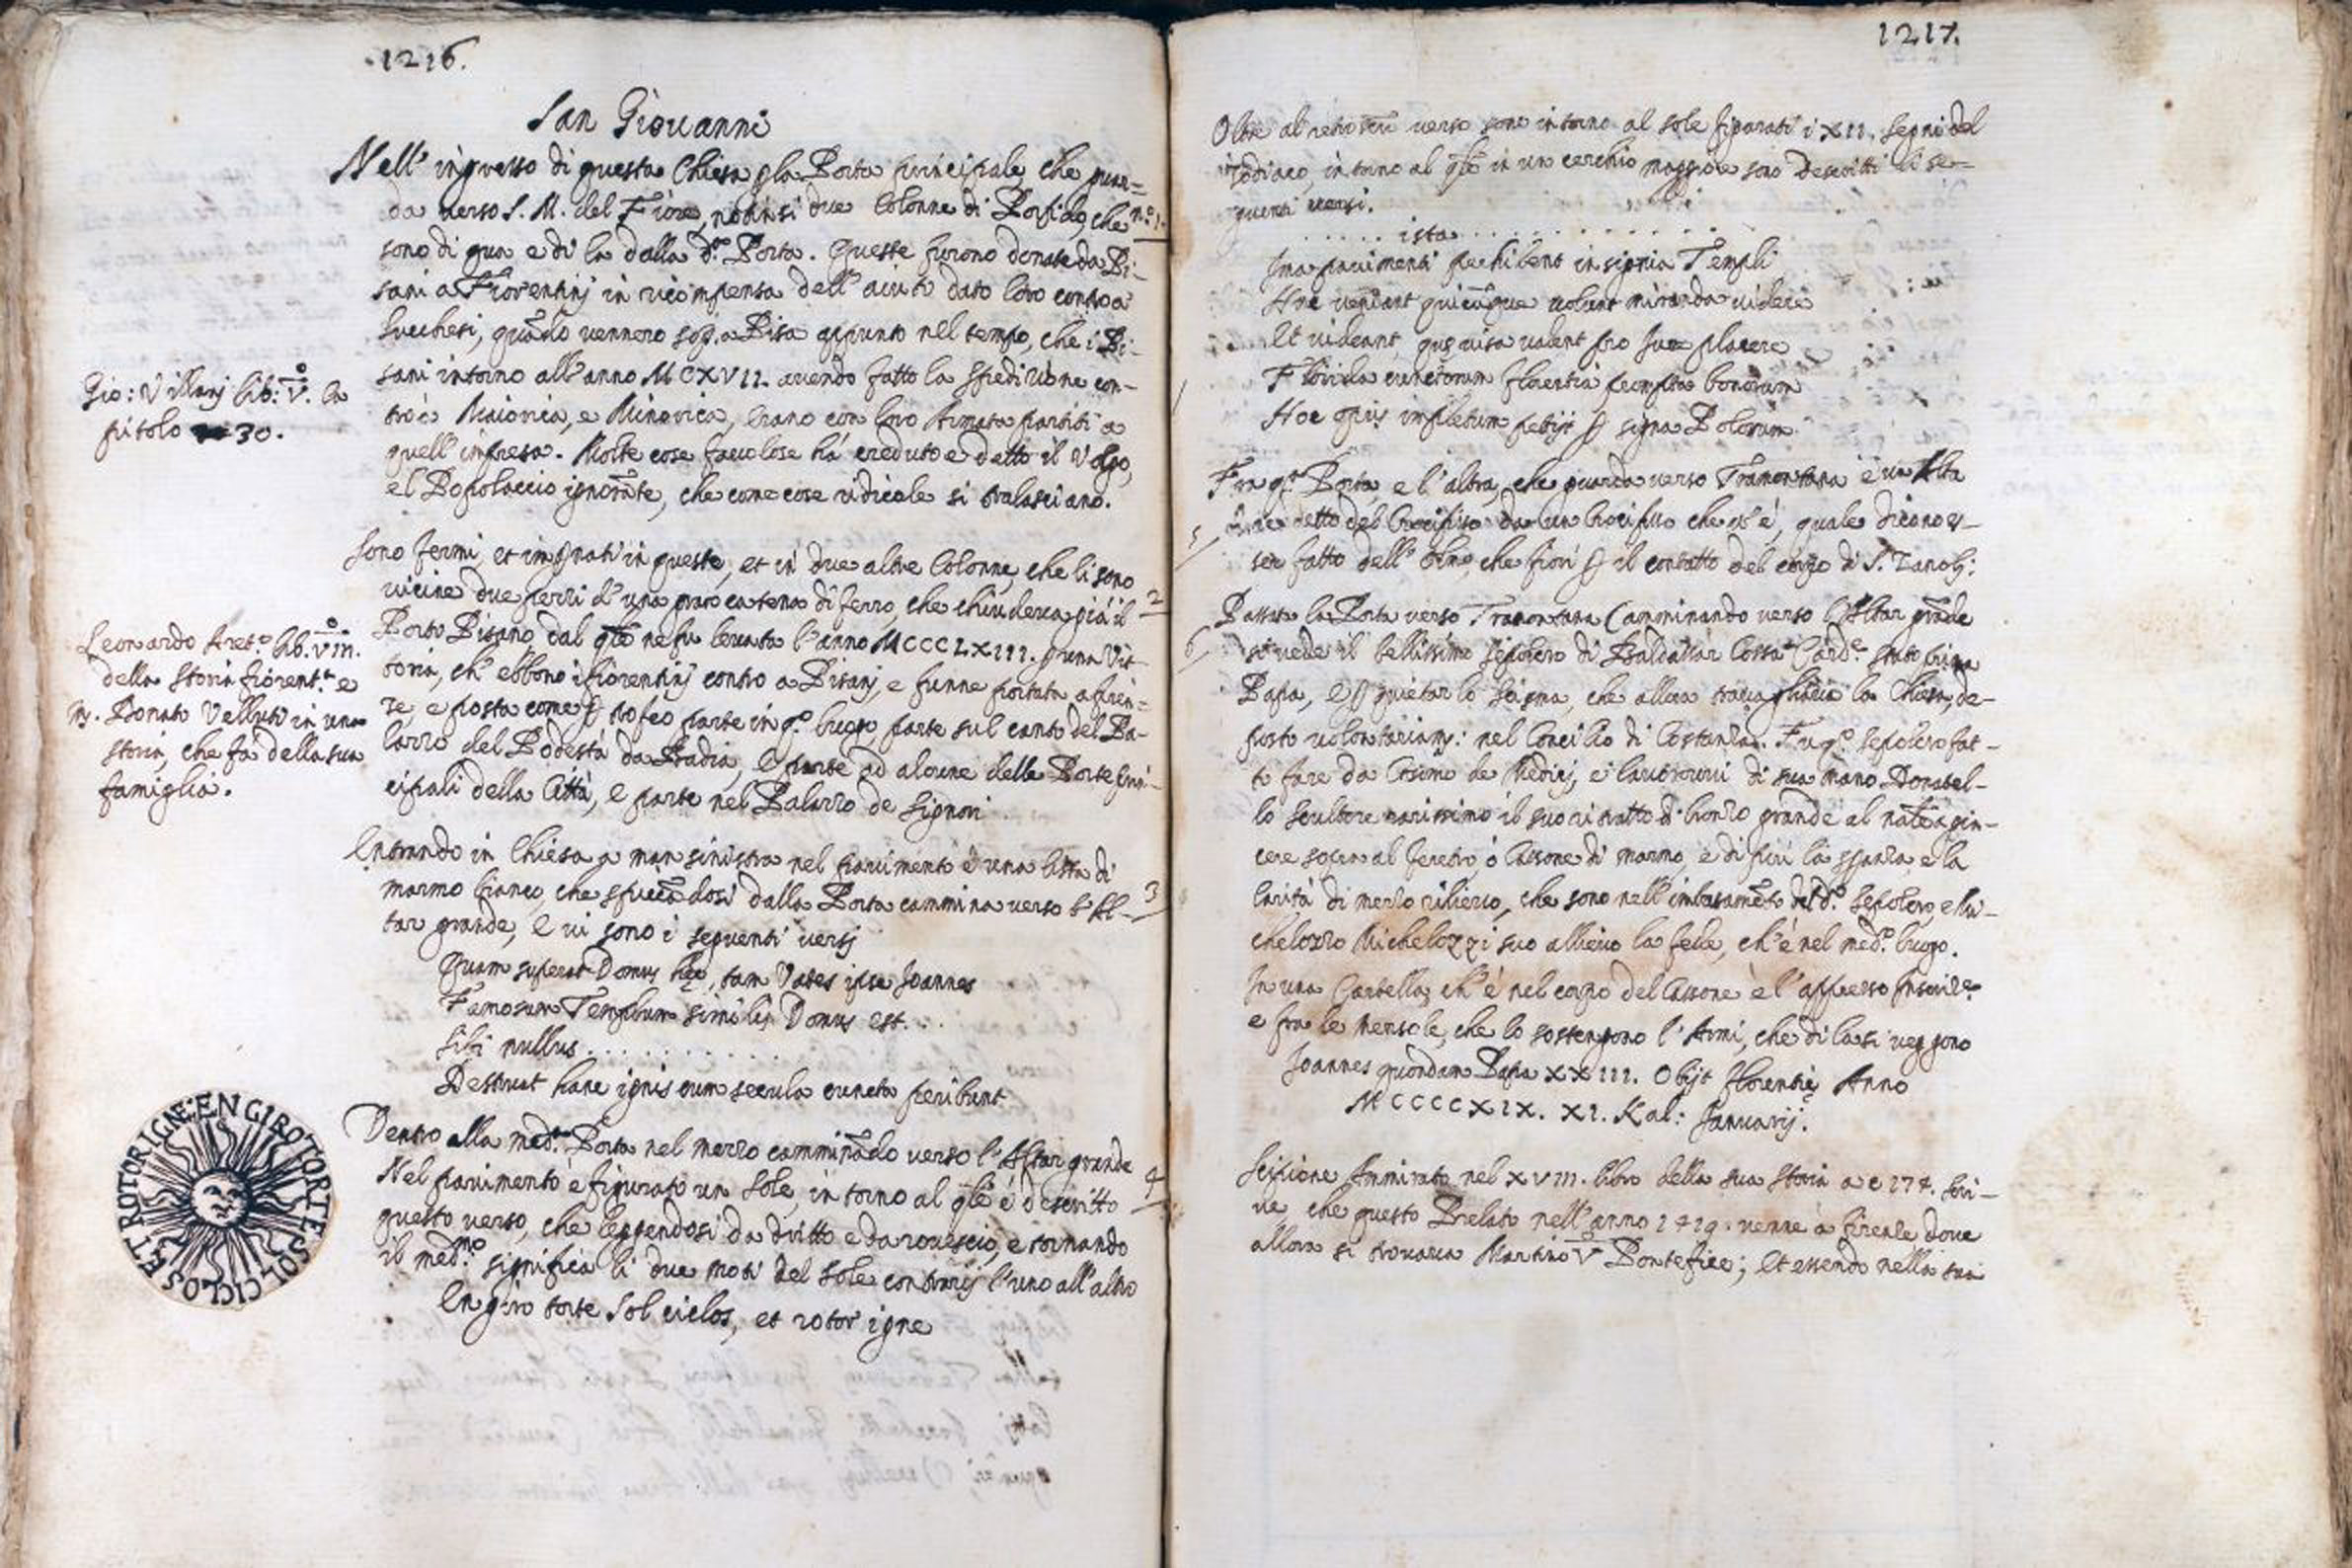 1216.
San Giovanni
Nell' ingresso di questa Chiesa p la Porta principale, che guar=
da verso S. M. del Fiore, vedonsi due Colonne di Porfido, che n.º 1.
sono di qua e di la dalla d.ª Porta. Queste furono donate da Pi-
sani a Fiorentinj in ricompensa dell' aiuto dato loro contro a
Lucchesi, quãdo vennero sop.a Pisa appunto nel tempo, che i Pi-
sani intorno all' anno MCXVII. avendo fatto la spedizione con-
tro a Maiorica, e Minorica, erano con loro Armata partiti a
quell' impresa. Molte cose favolose há creduto e detto il Volgo,
e'l Popolaccio ignorãte, che come cose ridicole si tralasciano.
Gio: Villanj lib: V.º Ca
pitolo 30.
Sono fermi, et impiõbati in queste, et in due altre Colonne, che li sono
vicine due pezzi d' una grossa catena di ferro, che chiudeva giá il 2
Porto Pisano, dal qle ne fu levata l' anno MCCCLXIII. p una Vit-
toria, ch' ebbono i fiorentinj contro a Pisanj, e funne portata a firen=
ze, e posta come p trofeo parte in q.º luogo, parte sul canto del Pa-
lazzo del Podestà da Badia, e parte ad alcune delle Porte prin-
cipali della Città, e parte nel Palazzo de Signori
Leonardo Aret.º lib. VIII.º
della Storia fiorent.ª e
M. Donato Velluti in una
storia, che fa della sua
famiglia.
Entrando in Chiesa a man sinistra nel pavimento è una lista di
marmo bianco, che spiccãdosi dalla Porta cammina verso l' Al- 3
tar grande, e vi sono i seguenti versj
Quam superat Domus hęc, tam Vates ipse Joannes
Famosum Templum similis Domus est. . .
Sibi nullus . . . . . . . . . .
Destruet hanc ignis cum secula cuncta peribunt
Dentro alla med.ma Porta nel mezzo camminãdo verso l' Altar grande
Nel pavimento è figurato un Sole, intorno al qle é descritto 4
questo verso, che leggendosi da dritto e da rovescio, e tornando
il med.mo significa li due moti del Sole contrarij l' uno all' altro
En giro torte Sol ciclos, et rotor igne
EN GIRO TORTE SOL CICLOS ET ROTOR IGNE
1217.
Oltre al verso sono intorno al sole figurati i XII. segni del
Zodiaco, intorno al qle in un cerchio maggiore sono descritti li se=
guenti versi.
. . . . . ista . . . . . . . . . . . .
pavimenti perhibent insignia Templi
Huc veniant quicũque volunt miranda videre
Et videant, quę visa valent pro jure placere
Florida cunctorum florentia prompta bonorum
Hoc opus impletum petijt p signa Polorum
Fra q.ª Porta, e l' altra, che guarda verso Tramontana è un Alta
5 detto del Crocifisso da un Crocifisso che v' é, quale dicono es-
ser fatto dell' Olmo, che fiorí p il contatto del corpo di S. Zanobj:
Passata la Porta verso Tramontana Camminando verso l' Altar grãde
6 si vede il bellissimo sepolcro di Baldassar Cossa Card.e stato prima
Papa, e p quietar lo Scisma, che allora travagliava la Chiesa, de-
posto volontariam.: nel Concilio di Costanza. Fu q.º sepolcro fat-
to fare da Cosimo de Medicj, e lavorovvi di sua mano Donatel-
lo Scultore rarissimo il suo ritratto di bronzo grande al naturale a gia-
cere sopra al feretro, ó Cassone di marmo, e di piú la speranza, e la
Carità di mezzo rilievo, che sono nell' imbasamẽto del d.º sepolcro, e Mi-
chelozzo Michelozzi suo allievo la fede, ch' é nel med.º luogo.
In una Cartella, ch' é nel corpo del Cassone è l' appresso Inscriz.e
e fra le mensole, che lo sostengono l' Armi, che di la si veggono
Joannes quondam Papa XXIII. Obijt florentię Anno
MCCCCXIX. XI. Kal: Januarij.
Scipione Ammirato nel XVIII. libro della sua Storia a c 974. scri-
ve che questo Prelato nell' anno 1419. venne a firenze dove
allora si trovava Martino V.º Pontefice; et essendo nella sua